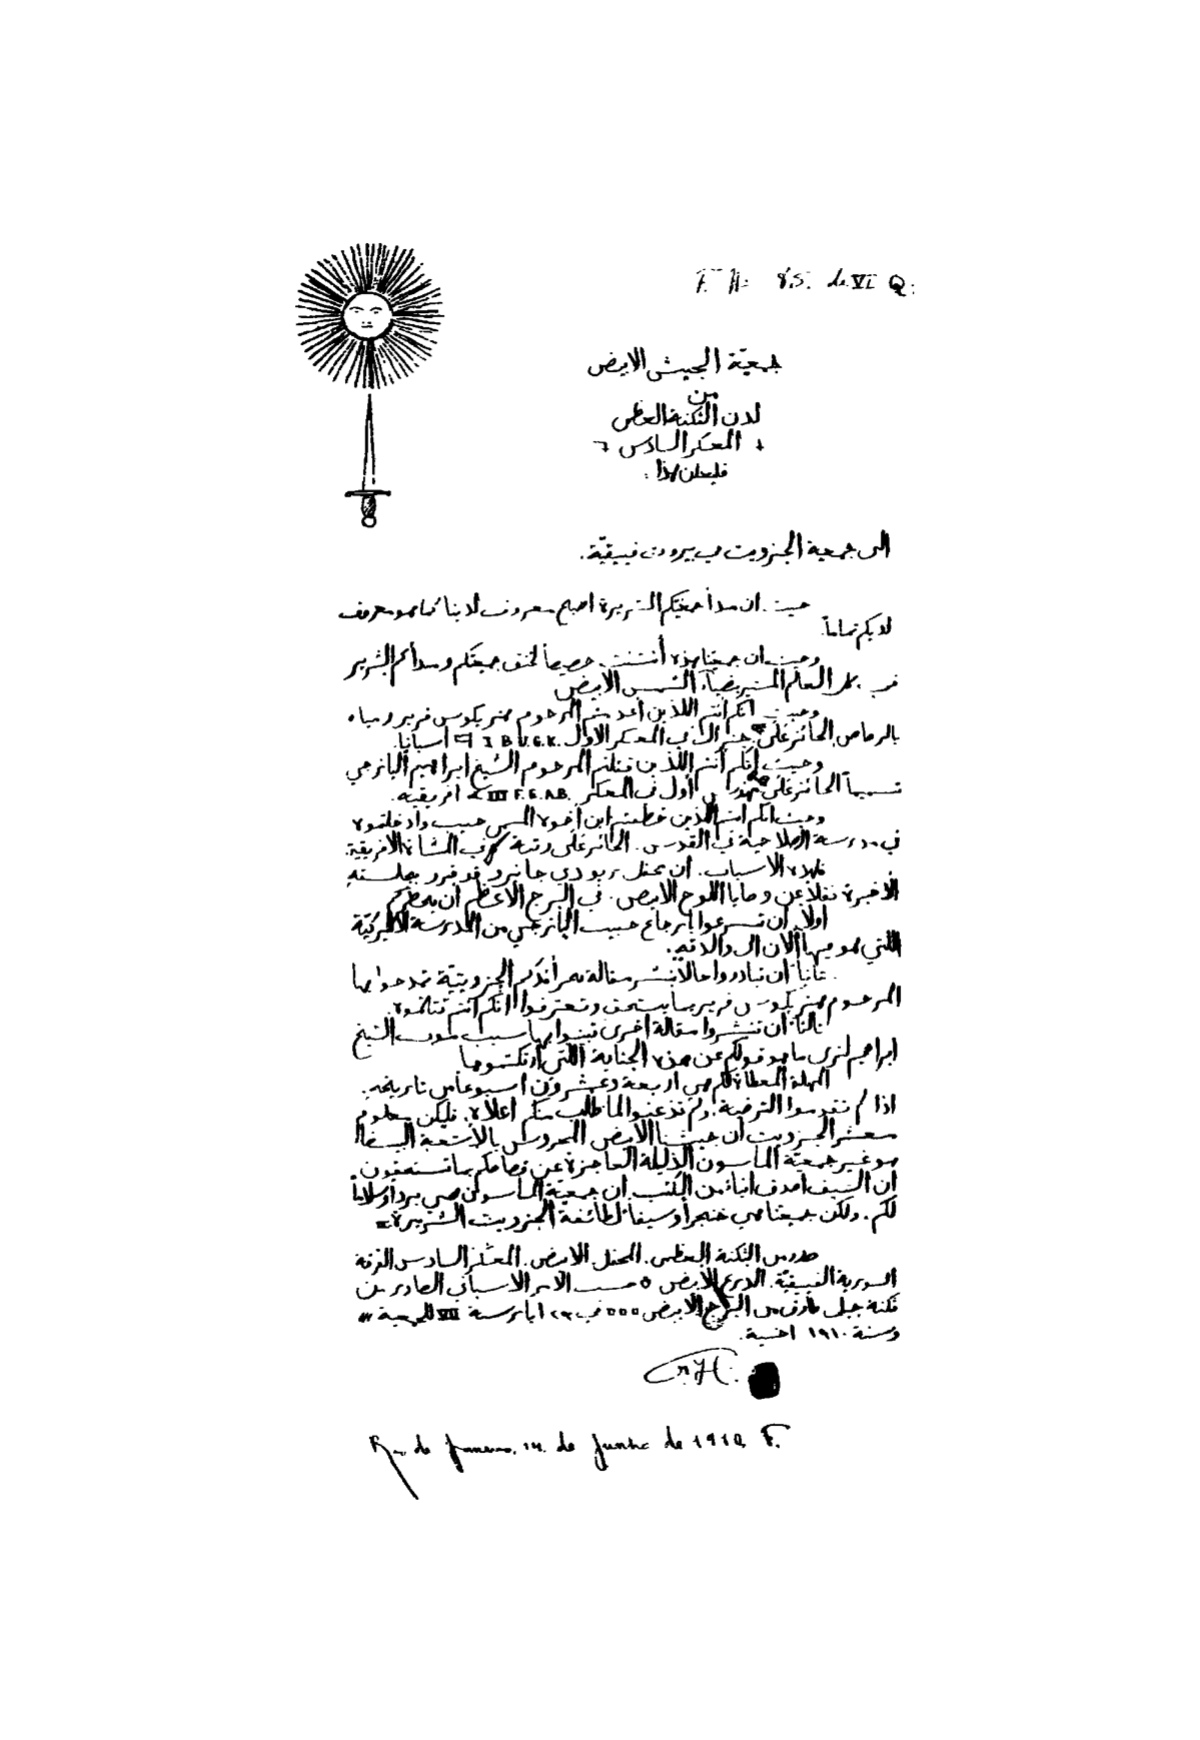 de VI Q.
جمعيّة الجيش الابيض
من
لدن الثكنة العظمى
المعسكر السادس
فليعلن هذا:
الى جمعية الجزويت في بيروت فينيقيّة.
حيث ان مبدأ جمعيتكم الشريرة اصبح معروف لدينا كما هو معروف
لديكم تماماً.
وحيث ان جمعيتنا هذه أنشئت خصيصاً لخنق جمعيتكم ومبدأكم الشرير
العالم المنير بضياء الشمس الابيض
وحيث انكم أنتم اللذين أعدمتم المرحوم فرير رمياً
بالرصاص الحائز على المعسكر الاول I B.V.G.K. اسبانيا.
وحيث إنكم أنتم اللذين قتلتم المرحوم الشيخ ابراهيم اليازجي
تسميماً الحائز على أول في المعسكر III F.G.A.B. افريقيه.
وحيث انكم انتم الذين خطفتم ابن أخوه حبيب وادخلتموه
في مدرسة الصلاحية في القدس. الحائز على رتبة الافريقية.
فلهذه الاسباب. ان محفل ريو دي جانيرو قد قرر بجلسته
الأخيرة نقلاً عن وصايا اللوح الابيض. في البرج الاعظم أن
اولاً. ان تسرعوا بارجاع حبيب اليازجي من المدرسة الاكليركيّة
اللتي هو فيها الآن الى والدته.
ثانياً أن تبادروا حالاً بنشر مقالة الجزويتيّة تمدحوا بها
المرحوم فرير بما يستحق وتعترفوا انكم انتم قتلتموه.
ثالثاً أن تنشروا مقالة اخرى تبينوا بها سبب موت الشيخ
ابراهيم لنرى ما هو قولكم عن هذه الجناية اللتي ارتكبتموها
المهلة المعطاة لكم هي اربعة وعشرون اسبوعاً من تاريخه.
اذا لم تقدموا الترضية. ولم تذعنوا لما طلب منكم اعلاه. فليكن معلوم
معشر الجزويت أن جيشنا الأبيض المحروس بالأشعة البيضا
هو غير جمعيّة الماسون الذليلة العاجزة عن قصاصكم بما تستحقون
أن السيف اصدق انباء من الكتب ان جمعيّة الماسون هي برداً وسلاماً
لكم. ولكن جمعيتنا هي خنجراً وسيفاً لطائفة الجزويت الشريرة.
صدر من الثكنة العظمى. المحفل الابيض. المعسكر السادس الفرقة
السورية الفينيقيّة. الذراع الأبيض حسب الامر الاسباني الصادر من
ثكنة جبل طارق من البرج الابيض في ٢٣ ايار سنة VII للجمعية
وسنة ١٩١٠
Rio de Janeiro. 14. de Junho de 1910